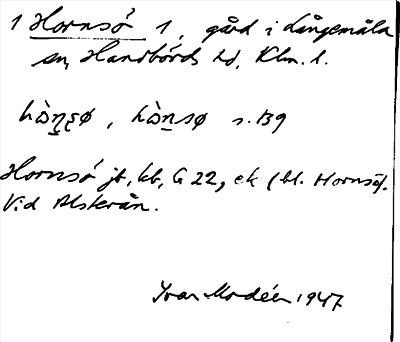 1 Hornsö 1, gård i Långemåla
sn, Handbörds hd, Klm. l.
hὼṉʂø, hὼṉsø s. 139
Hornsö jb, kb, G 22, ek (bl. Hornsö).
Vid Alsterån.
Ivar Modéer 1947